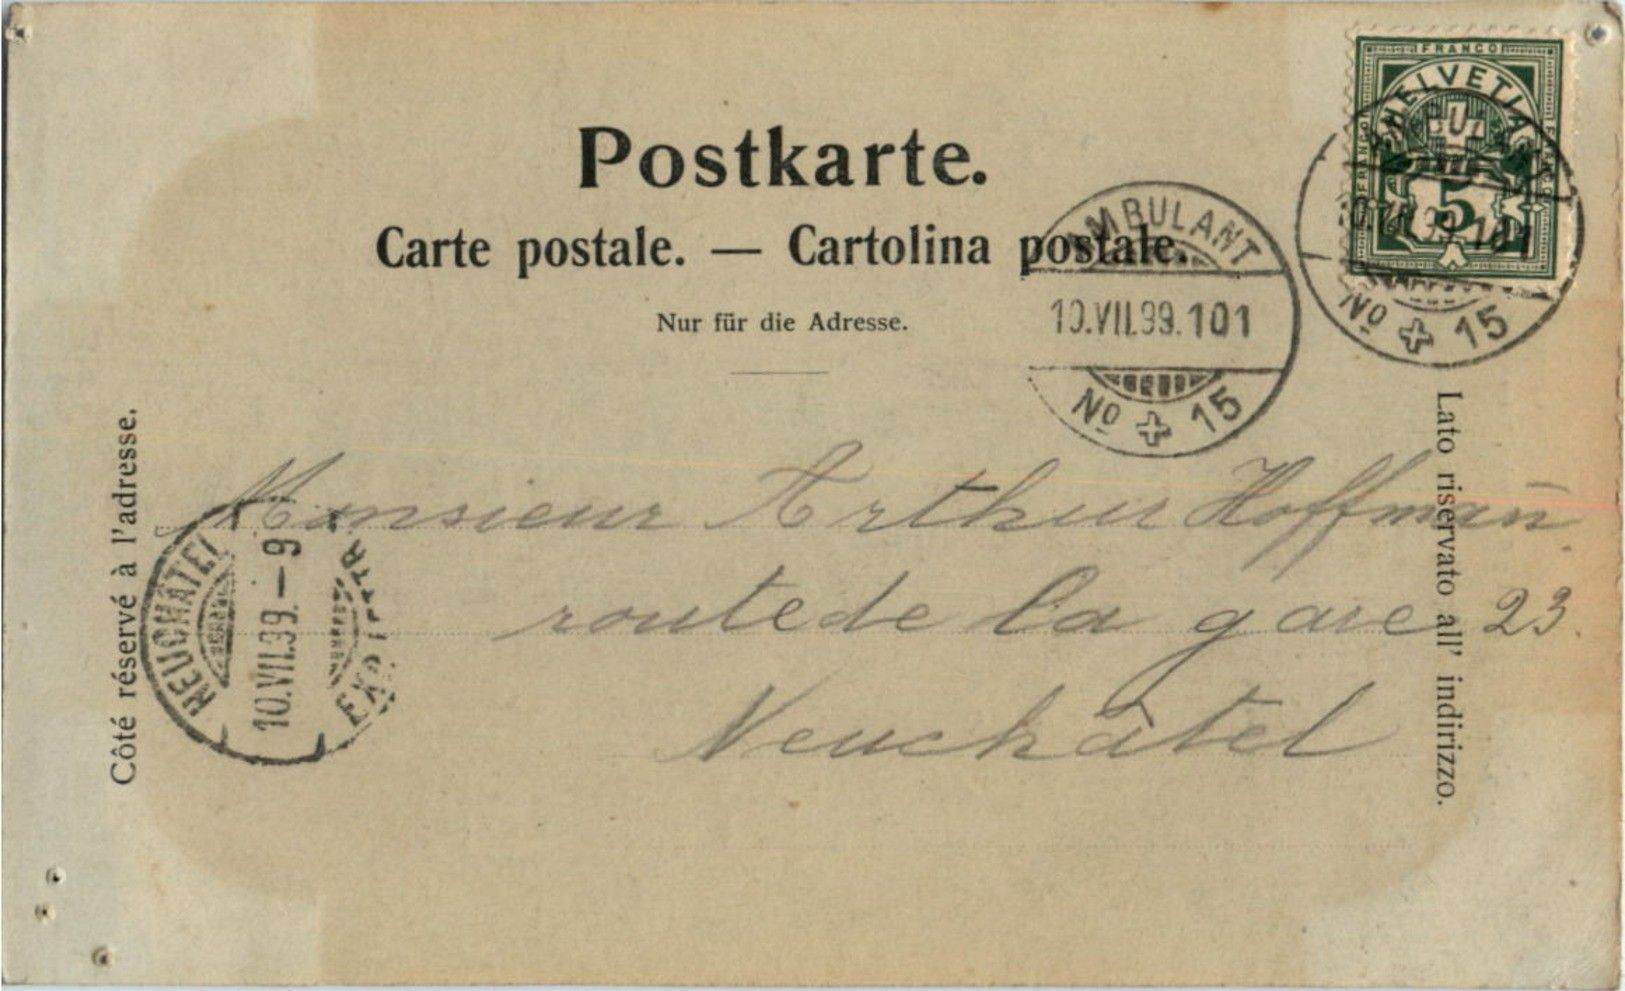 FRANCO
HELVETIA
FRANCO
5
FRANCO
Postkarte.
Carte postale. — Cartolina postale.
Nur für die Adresse.
AMBULANT
10.VII.99.101
No 15
AMBULANT
10.VII.99.101
No 15
Côté réservé à l'adresse.
Lato riservato all' indirizzo.
Monsieur Arthur Hoffmann
route de la gare 23.
Neuchâtel
NEUCHÂTEL
10.VII.99.—9